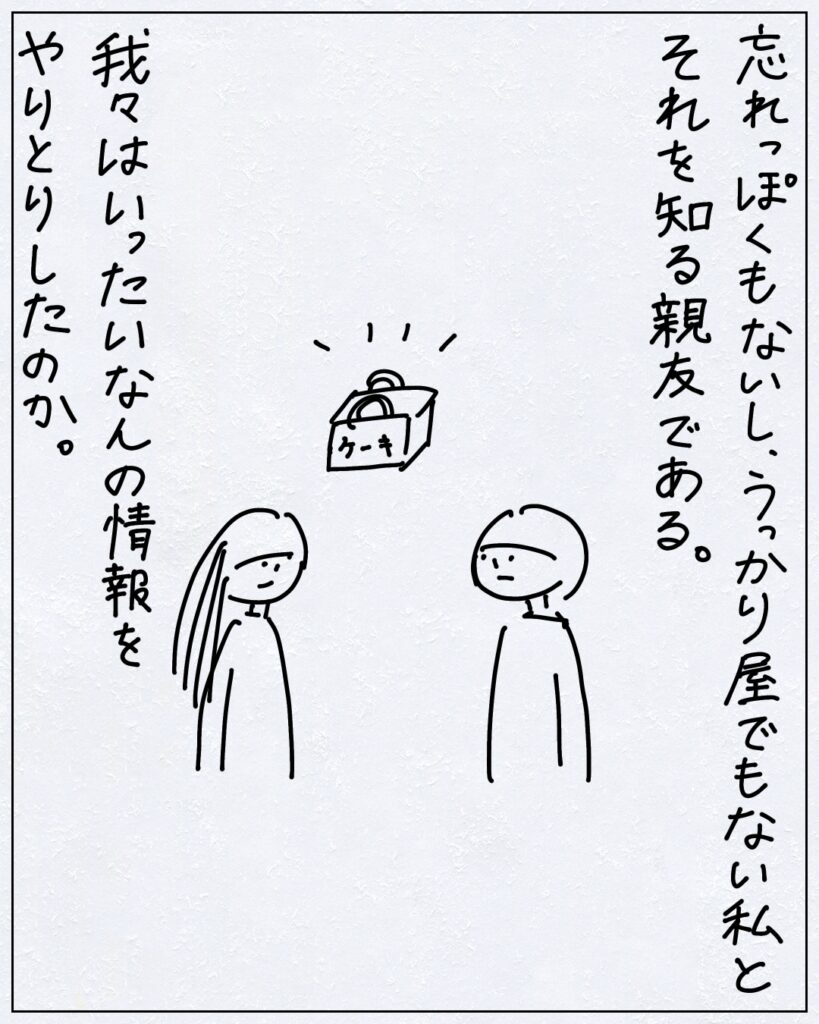 忘れっぽくもないし、うっかり屋でもない私と
それを知る親友である。
ケーキ
我々はいったいなんの情報を
やりとりしたのか。